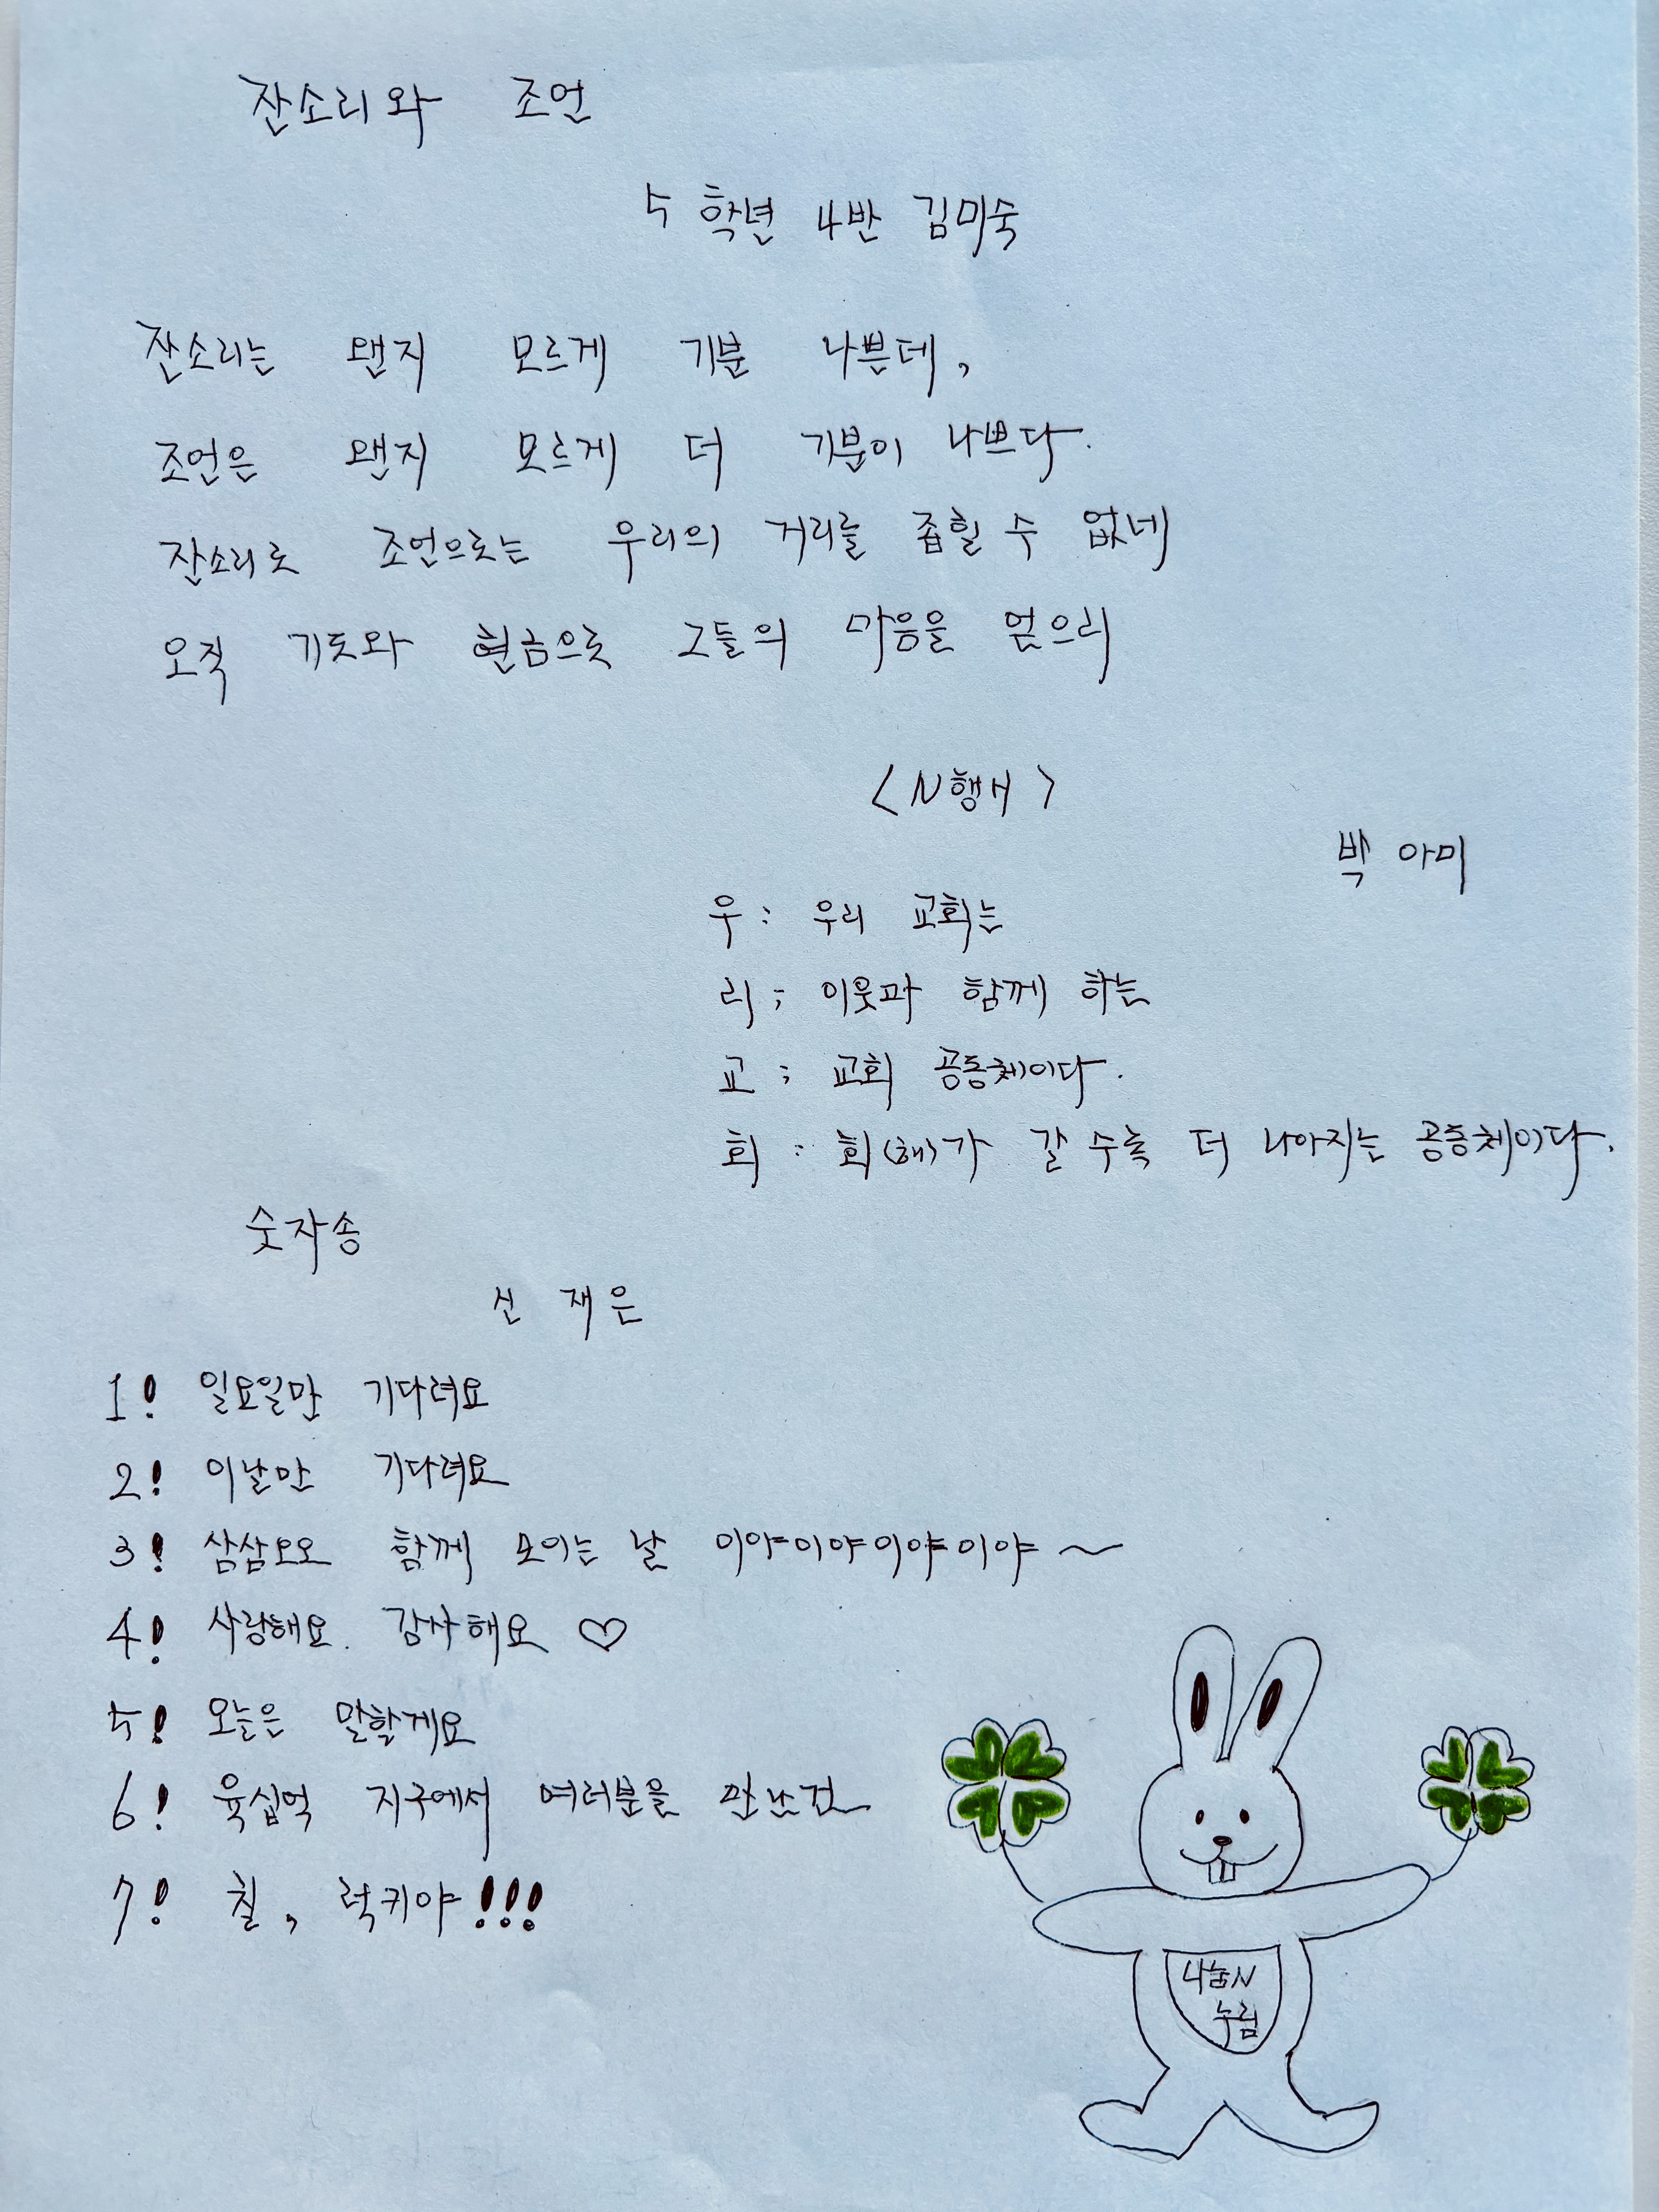 잔소리와 조언
5 학년 4반 김미숙
잔소리는 왠지 모르게 기분 나쁜데,
조언은 왠지 모르게 더 기분이 나쁘다.
잔소리로 조언으로는 우리의 거리를 좁힐 수 없네
오직 기도와 현금으로 그들의 마음을 얻으리
<N행시>
박 아미
우 : 우리 교회는
리 ; 이웃과 함께 하는
교 ; 교회 공동체이다.
회 : 회(해)가 갈 수록 더 나아지는 공동체이다.
숫자송
신 재은
1! 일요일만 기다려요
2! 이날만 기다려요
3! 삼삼오오 함께 모이는 날 이야이야이야이야~
4! 사랑해요. 감사해요 ♡
5! 오늘은 말할게요
6! 육십억 지구에서 여러분을 만난건
7! 칠, 럭키야!!!
나눔N
누림